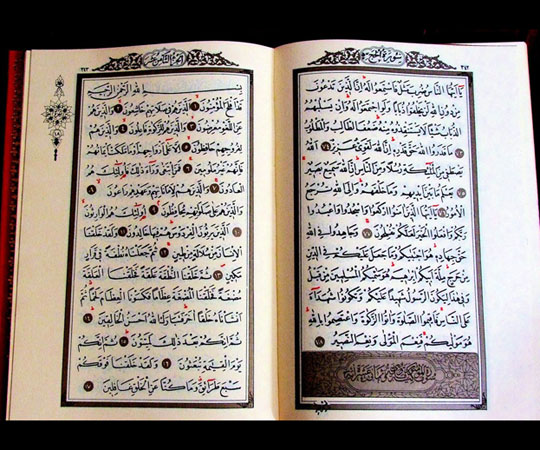 سورة الحج
يَا أَيُّهَا النَّاسُ ضُرِبَ مَثَلٌ فَاسْتَمِعُوا لَهُ إِنَّ الَّذِينَ تَدْعُونَ
مِنْ دُونِ اللَّهِ لَنْ يَخْلُقُوا ذُبَابًا وَلَوِ اجْتَمَعُوا لَهُ وَإِنْ يَسْلُبْهُمُ
الذُّبَابُ شَيْئًا لَا يَسْتَنْقِذُوهُ مِنْهُ ضَعُفَ الطَّالِبُ وَالْمَطْلُوبُ
٧٣ مَا قَدَرُوا اللَّهَ حَقَّ قَدْرِهِ إِنَّ اللَّهَ لَقَوِيٌّ عَزِيزٌ ٧٤ اَللَّهُ
يَصْطَفِي مِنَ الْمَلٰئِكَةِ رُسُلًا وَمِنَ النَّاسِ إِنَّ اللَّهَ سَمِيعٌ بَصِيرٌ
٧٥ يَعْلَمُ مَا بَيْنَ أَيْدِيهِمْ وَمَا خَلْفَهُمْ وَإِلَى اللَّهِ تُرْجَعُ
الْأُمُورُ ٧٦ يَا أَيُّهَا الَّذِينَ آمَنُوا ارْكَعُوا وَاسْجُدُوا وَاعْبُدُوا
رَبَّكُمْ وَافْعَلُوا الْخَيْرَ لَعَلَّكُمْ تُفْلِحُونَ ٧٧ وَجَاهِدُوا فِي اللَّهِ
حَقَّ جِهَادِهِ هُوَ اجْتَبٰيكُمْ وَمَا جَعَلَ عَلَيْكُمْ فِي الدِّينِ
مِنْ حَرَجٍ مِلَّةَ أَبِيكُمْ إِبْرٰهِيمَ هُوَ سَمّٰيكُمُ الْمُسْلِمِينَ مِنْ قَبْلُ
وَفِي هٰذَا لِيَكُونَ الرَّسُولُ شَهِيدًا عَلَيْكُمْ وَتَكُونُوا شُهَدَاءَ
عَلَى النَّاسِ فَأَقِيمُوا الصَّلٰوةَ وَآتُوا الزَّكٰوةَ وَاعْتَصِمُوا بِاللَّهِ
هُوَ مَوْلٰيكُمْ فَنِعْمَ الْمَوْلٰى وَنِعْمَ النَّصِيرُ ٧٨
الجزء الثامن عشر
بِسْمِ اللَّهِ الرَّحْمٰنِ الرَّحِيمِ
قَدْ أَفْلَحَ الْمُؤْمِنُونَ ١ اَلَّذِينَ هُمْ فِي صَلَاتِهِمْ خَاشِعُونَ ٢ وَالَّذِينَ هُمْ
عَنِ اللَّغْوِ مُعْرِضُونَ ٣ وَالَّذِينَ هُمْ لِلزَّكٰوةِ فَاعِلُونَ ٤ وَالَّذِينَ هُمْ
لِفُرُوجِهِمْ حَافِظُونَ ٥ إِلَّا عَلٰى أَزْوَاجِهِمْ أَوْ مَا مَلَكَتْ أَيْمَانُهُمْ
فَإِنَّهُمْ غَيْرُ مَلُومِينَ ٦ فَمَنِ ابْتَغٰى وَرَاءَ ذٰلِكَ فَأُولٰئِكَ هُمُ
الْعَادُونَ ٧ وَالَّذِينَ هُمْ لِأَمَانَاتِهِمْ وَعَهْدِهِمْ رَاعُونَ ٨
وَالَّذِينَ هُمْ عَلٰى صَلَوَاتِهِمْ يُحَافِظُونَ ٩ أُولٰئِكَ هُمُ الْوَارِثُونَ
١٠ اَلَّذِينَ يَرِثُونَ الْفِرْدَوْسَ هُمْ فِيهَا خَالِدُونَ ١١ وَلَقَدْ خَلَقْنَا
الْإِنْسَانَ مِنْ سُلَالَةٍ مِنْ طِينٍ ١٢ ثُمَّ جَعَلْنَاهُ نُطْفَةً فِي قَرَارٍ
مَكِينٍ ١٣ ثُمَّ خَلَقْنَا النُّطْفَةَ عَلَقَةً فَخَلَقْنَا الْعَلَقَةَ
مُضْغَةً فَخَلَقْنَا الْمُضْغَةَ عِظَامًا فَكَسَوْنَا الْعِظَامَ لَحْمًا ثُمَّ
أَنْشَأْنَاهُ خَلْقًا آخَرَ فَتَبَارَكَ اللَّهُ أَحْسَنُ الْخَالِقِينَ ١٤
ثُمَّ إِنَّكُمْ بَعْدَ ذٰلِكَ لَمَيِّتُونَ ١٥ ثُمَّ إِنَّكُمْ
يَوْمَ الْقِيٰمَةِ تُبْعَثُونَ ١٦ وَلَقَدْ خَلَقْنَا فَوْقَكُمْ
سَبْعَ طَرَائِقَ وَمَا كُنَّا عَنِ الْخَلْقِ غَافِلِينَ ١٧